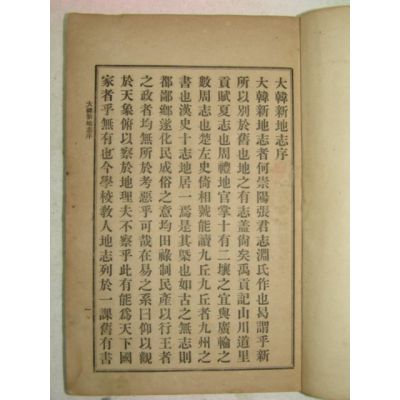 大韓新地志序
大韓新地志者何崇陽張君志淵氏作也曷謂乎新
所以別於舊也地之有志盖尙矣禹貢記山川道里
貢賦夏志也周禮地官掌十有二壤之宜與廣輪之
數周志也楚左史倚相號能讀九丘九丘者九州之
書也漢史十志地居一焉是其槩也如古之無志則
都鄙鄕遂化民成俗之意均田祿制民産以行王者
之政者均無所於考惡乎可哉在易之系曰仰以觀
於天象俯以察於地理夫不察乎此有能爲天下國
家者乎無有也今學校敎人地志列於一課舊有書
大韓新地志序
一